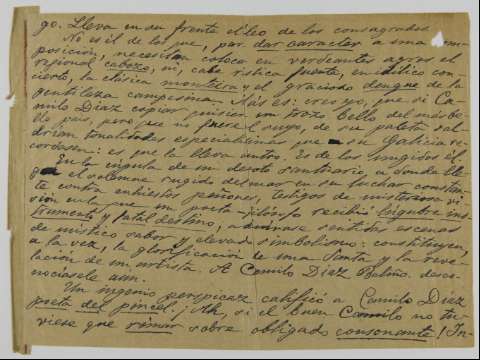 go. Lleva en su frente el óleo de los consagrados.
No es él de los que, por dar caracter a una com-
posición, necesitan colocar en verdeantes agros el
regional cabozo, ni, cabe rústica fuente, en idílico con-
cierto, la clásica monteira y el gracioso dengue de la
gentileza campesina. Mas es: creo yo, que si Ca-
milo Díaz copiar quisiera un trozo bello del más be-
llo país, pero que no fuere el suyo, de su paleta sal-
drían tonalidades especialísimas que a su Galicia re-
cordasen: es que la lleva dentro. Es de los ungidos él.
En la cúpula de un devoto santuario, a donde lle-
ga el solemne rugido del mar en su luchar constan-
te contra enhiestos peñones, testigos de misteriosa vi-
sión en la que un poeta filósofo recibió lúgubre ins-
trumento y fatal destino, admiranse sentidas escenas
de místico sabor y elevado simbolismo: constituyen,
a la vez, la glorificación de una Santa y la reve-
lación de un artista. A Camilo Díaz Baliño desco-
nocíasele aún.
Un ingenio perspicaz calificó a Camilo Díaz
poeta del pincel. ¡Ah, si el buen Camilo no tu-
viese que rimar sobre obligado consonante! ¡In-